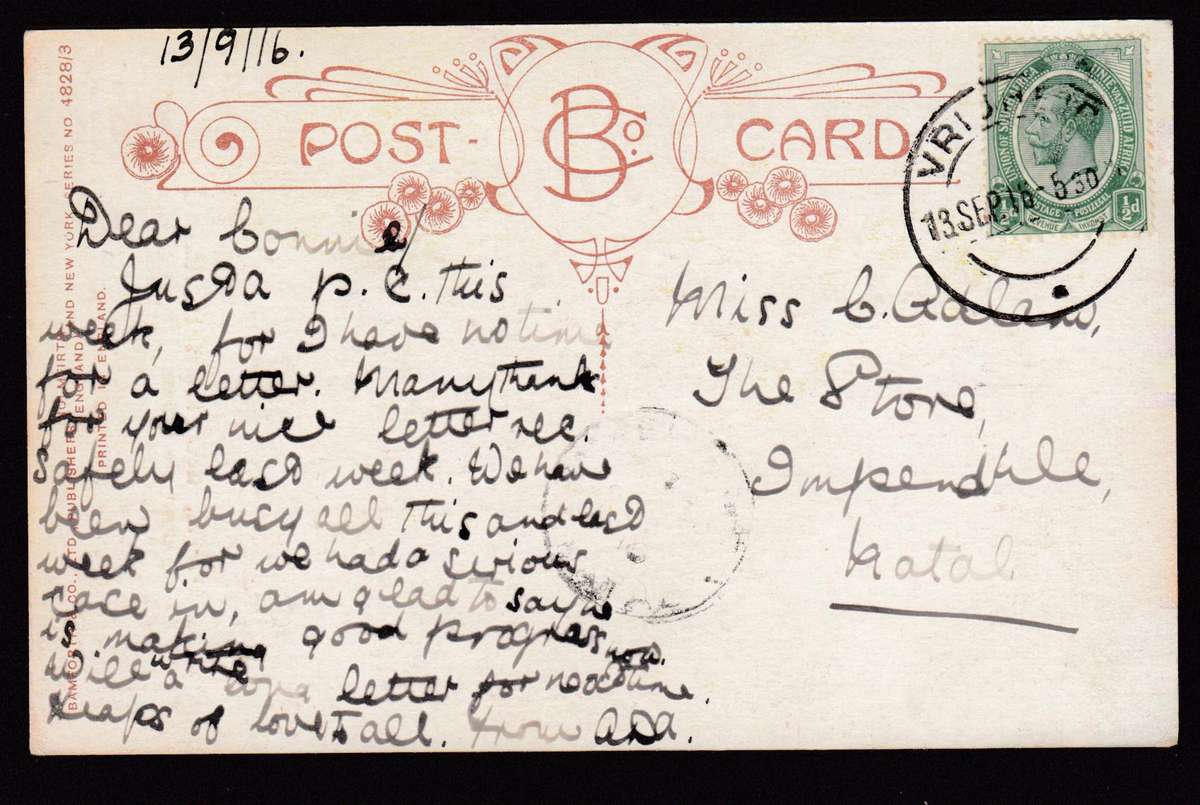 13/9/16.
POST-
B Co. C
CARD
BAMFORTH & CO., LTD., PUBLISHERS, HOLMFIRTH, ENGLAND, AND NEW YORK. SERIES NO 4828/3
PRINTED IN ENGLAND.
UNION OF SOUTH AFRICA UNIE VAN ZUID AFRIKA
POSTAGE POSTZEGEL
REVENUE INKOMST
½d
VRIJHEID
13 SEP 16-530
Dear Connie/
Just a p.c. this
week, for I have no time
for a letter. Many thank
for your nice letter rec.
safely last week. We have
been busy all this and last
week for we had a serious
case in, am glad to say he
is making good progress now.
Will write a long letter for next time.
Heaps of love to all. From ADA.
Miss C. Adlam,
The Store,
Impendhle,
Natal